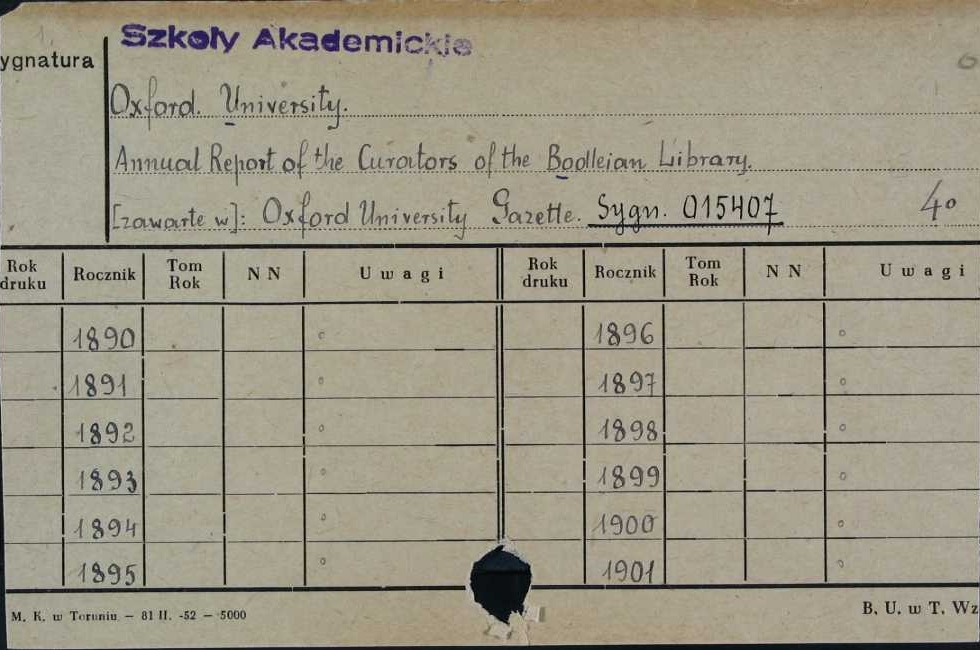 Szkoły Akademickie
ygnatura
Oxford. University.
Annual Report of the Curators of the Bodleian Library.
[zawarte w]: Oxford University Gazette. Sygn. 015407 4o
Rok druku Rocznik Tom Rok NN Uwagi Rok druku Rocznik Tom Rok NN Uwagi
1890 1896
1891 1897
1892 1898
1893 1899
1894 1900
1895 1901
M. K. w Toruniu — 81 II. -52 — 5000 B. U. w T. Wz